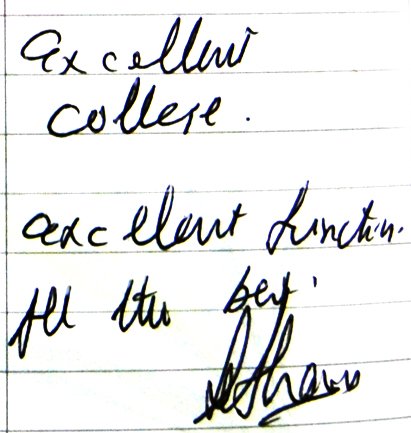 excellent
college.
excellent function.
All the best.